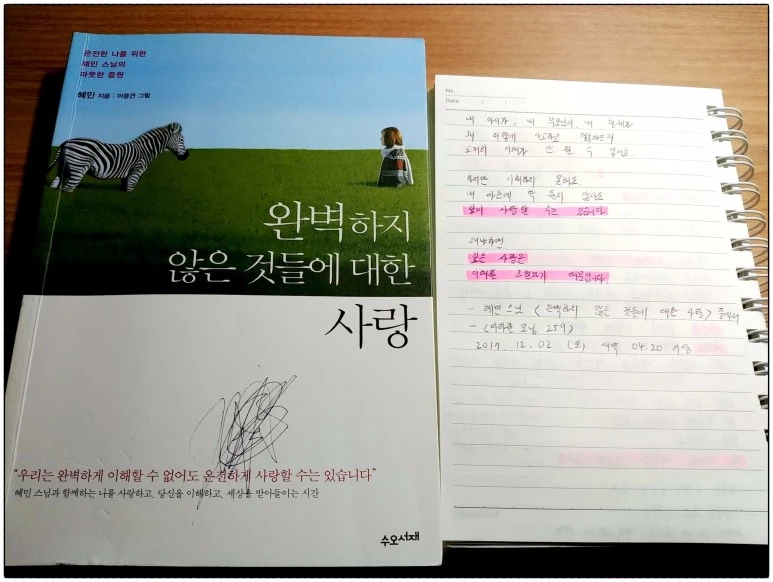 온전한 나를 위한
혜민 스님의
따뜻한 응원
혜민 지음 | 이응견 그림
완벽하지
않은 것들에 대한
사랑
"우리는 완벽하게 이해할 수 없어도 온전하게 사랑할 수는 있습니다"
혜민 스님과 함께하는 나를 사랑하고, 당신을 이해하고, 세상을 받아들이는 시간
수오서재
No.
Date / /
내 아이가, 내 부모님이, 내 형제가
왜 이렇게 사고하고 행동하는지
도저히 이해가 안 될 수 있어요
하지만 이해하지 못해도
내 마음에 딱 들지 않아도
깊이 사랑할 수는 있습니다.
왜냐하면
깊은 사랑은
이해를 초월하기 때문입니다.
- 혜민 스님 <완벽하지 않은 것들에 대한 사랑> 중에서
- (미라클 모닝 259)
2017. 12. 02 (토) 새벽 04:20 기상